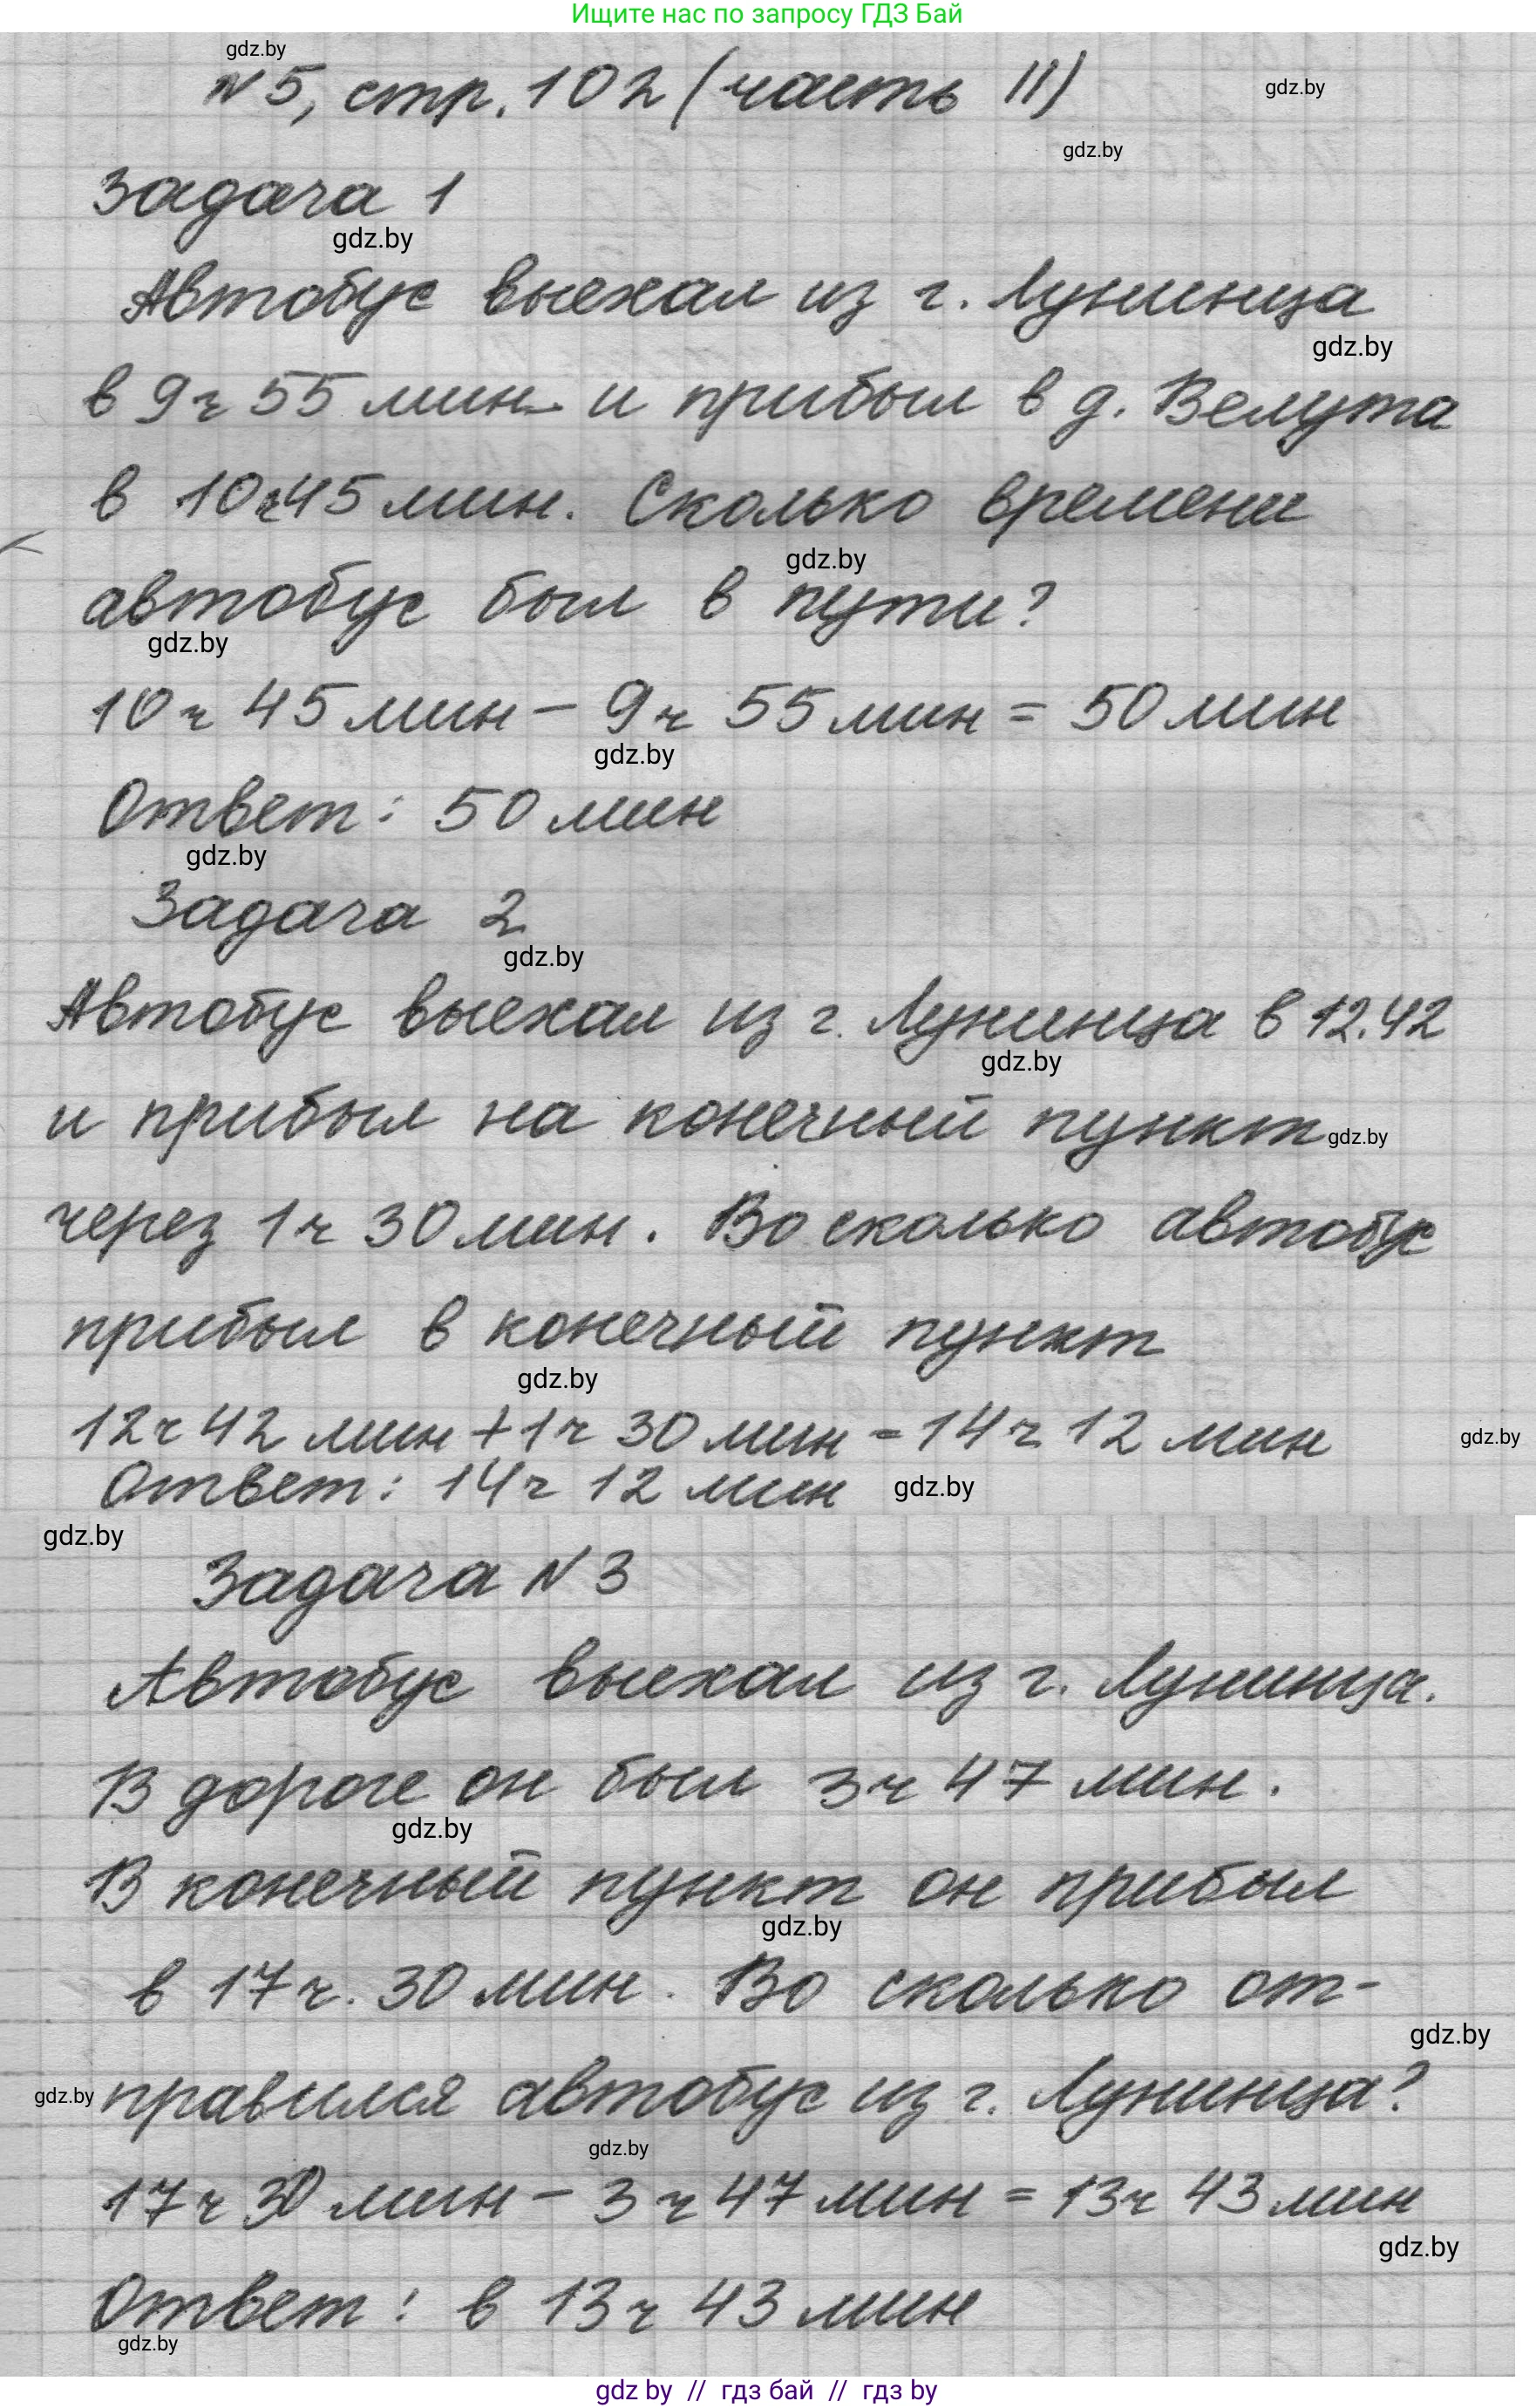 Ищите нас по запросу ГДЗ Бай
gdz.by
N 5, стр. 102 (часть II)
gdz.by
gdz.by
Задача 1
gdz.by
Автобус выехал из г. Лунинца
gdz.by
в 9 ч 55 мин и прибыл в д. Велута
в 10 ч 45 мин. Сколько времени
gdz.by
автобус был в пути?
gdz.by
10 ч 45 мин - 9 ч 55 мин = 50 мин
gdz.by
Ответ: 50 мин
gdz.by
Задача 2
gdz.by
Автобус выехал из г. Лунинца в 12.42
gdz.by
и прибыл на конечный пункт gdz.by
через 1 ч 30 мин. Во сколько автобус
прибыл в конечный пункт
gdz.by
12 ч 42 мин + 1 ч 30 мин = 14 ч 12 мин gdz.by
Ответ: 14 ч 12 мин gdz.by
gdz.by
Задача N 3
Автобус выехал из г. Лунинца.
В дороге он был 3 ч 47 мин.
gdz.by
В конечный пункт он прибыл
gdz.by
в 17 ч. 30 мин. Во сколько от-
gdz.by
gdz.by правился автобус из г. Лунинца?
gdz.by
17 ч 30 мин - 3 ч 47 мин = 13 ч 43 мин
gdz.by
Ответ: в 13 ч 43 мин
gdz.by
gdz by // гдз бай // гдз by